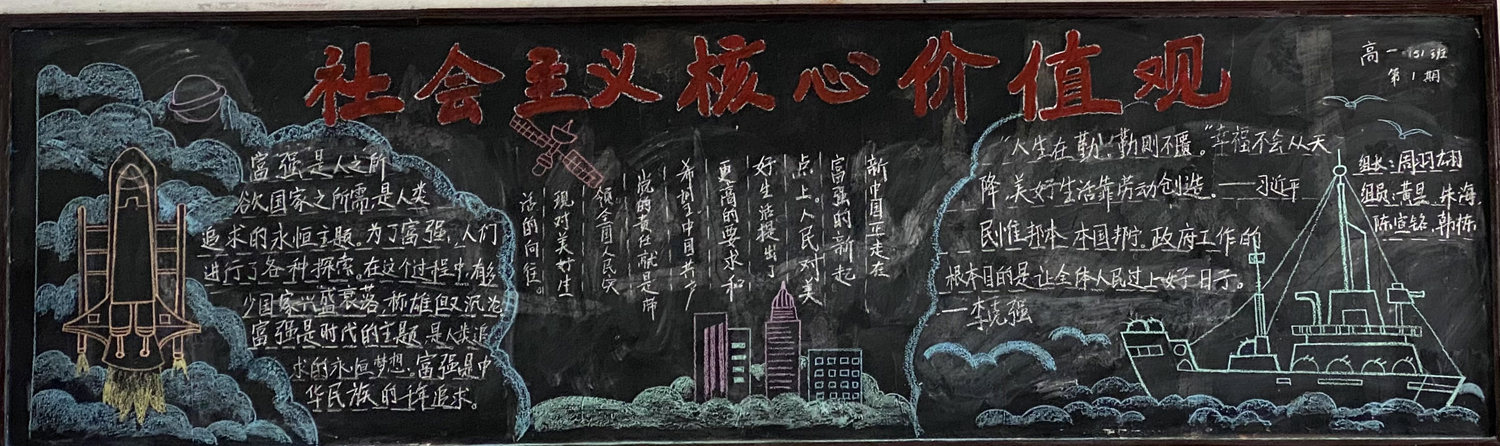 社会主义核心价值观
高一(5)班
第1期
富强是人之所
欲国家之所需是人类
追求的永恒主题。为了富强,人们
进行了各种探索。在这个过程中,有多
少国家兴盛衰落,称雄但又沉沦
富强是时代的主题,是人类追
求的永恒梦想,富强是中
华民族的千年追求。
新中国正走在
富强的新起
点上。人民对美
好生活提出了
更高的要求和
希望。中国共产
党的责任就是带
领全国人民实
现对美好生
活的向往。
"人生在勤,勤则不匮。"幸福不会从天
降,美好生活靠劳动创造。——习近平
民惟邦本,本国邦宁。政府工作的
根本目的是让全体人民过上好日子。
—李克强
组长:周羽翔
组员:黄昱 朱海
陈宣铭 韩栋